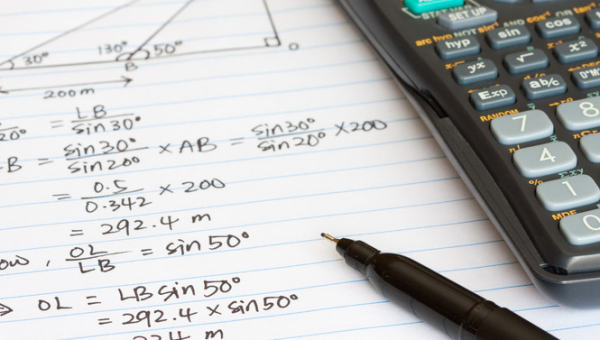 30° 130° 50° B O
200 m
20° = LB/sin 30°
B = sin 30°/sin 20° × AB = sin 30°/sin 20° × 200
= 0.5/0.342 × 200
= 292.4 m
ow, OL/LB = sin 50°
⇒ OL = LB sin 50°
= 292.4 × sin 50°
224 m
SET UP
arc hyp NOT sin⁻¹ AND cos⁻¹ OR
hyp sin cos
yˣ √ x²
Exp aᵇ/c D°M'S
RANDOM
7 8
4
% 1
MDF 0